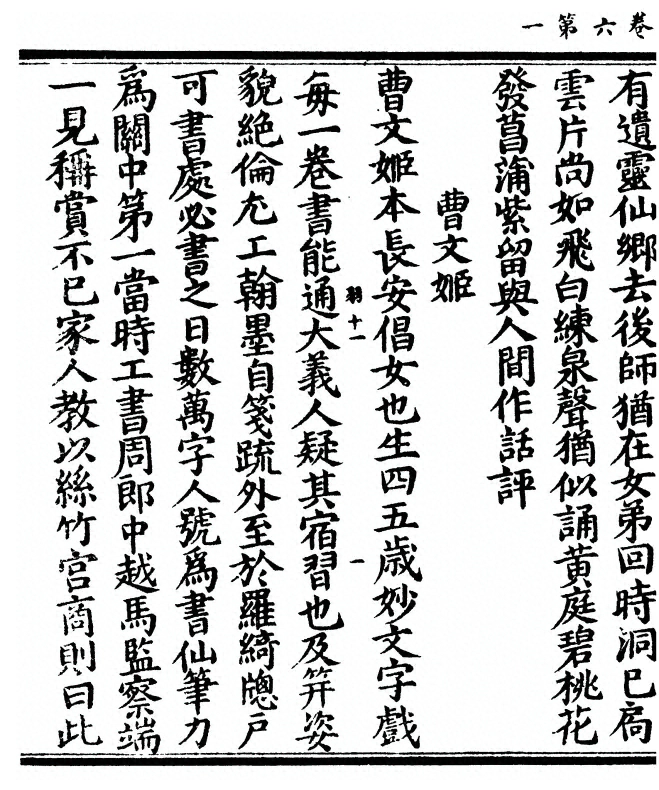 卷六第一
有遺靈仙鄉去後師猶在女弟回時洞已扃
雲片尚如飛白練泉聲猶似誦黃庭碧桃花
發菖蒲紫留與人間作話評
曹文姬
曹文姬本長安倡女也生四五歲妙文字戲
每一卷書能通大義人疑其宿習也及笄姿
貌絶倫尤工翰墨自箋疏外至於羅綺牕戶
可書處必書之日數萬字人號爲書仙筆力
爲關中第一當時工書周郎中越馬監察端
一見稱賞不已家人教以絲竹宮商則曰此